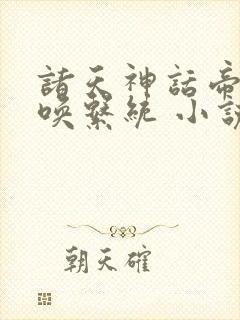 諸天神話帝
喚繫統 小說
朝天確